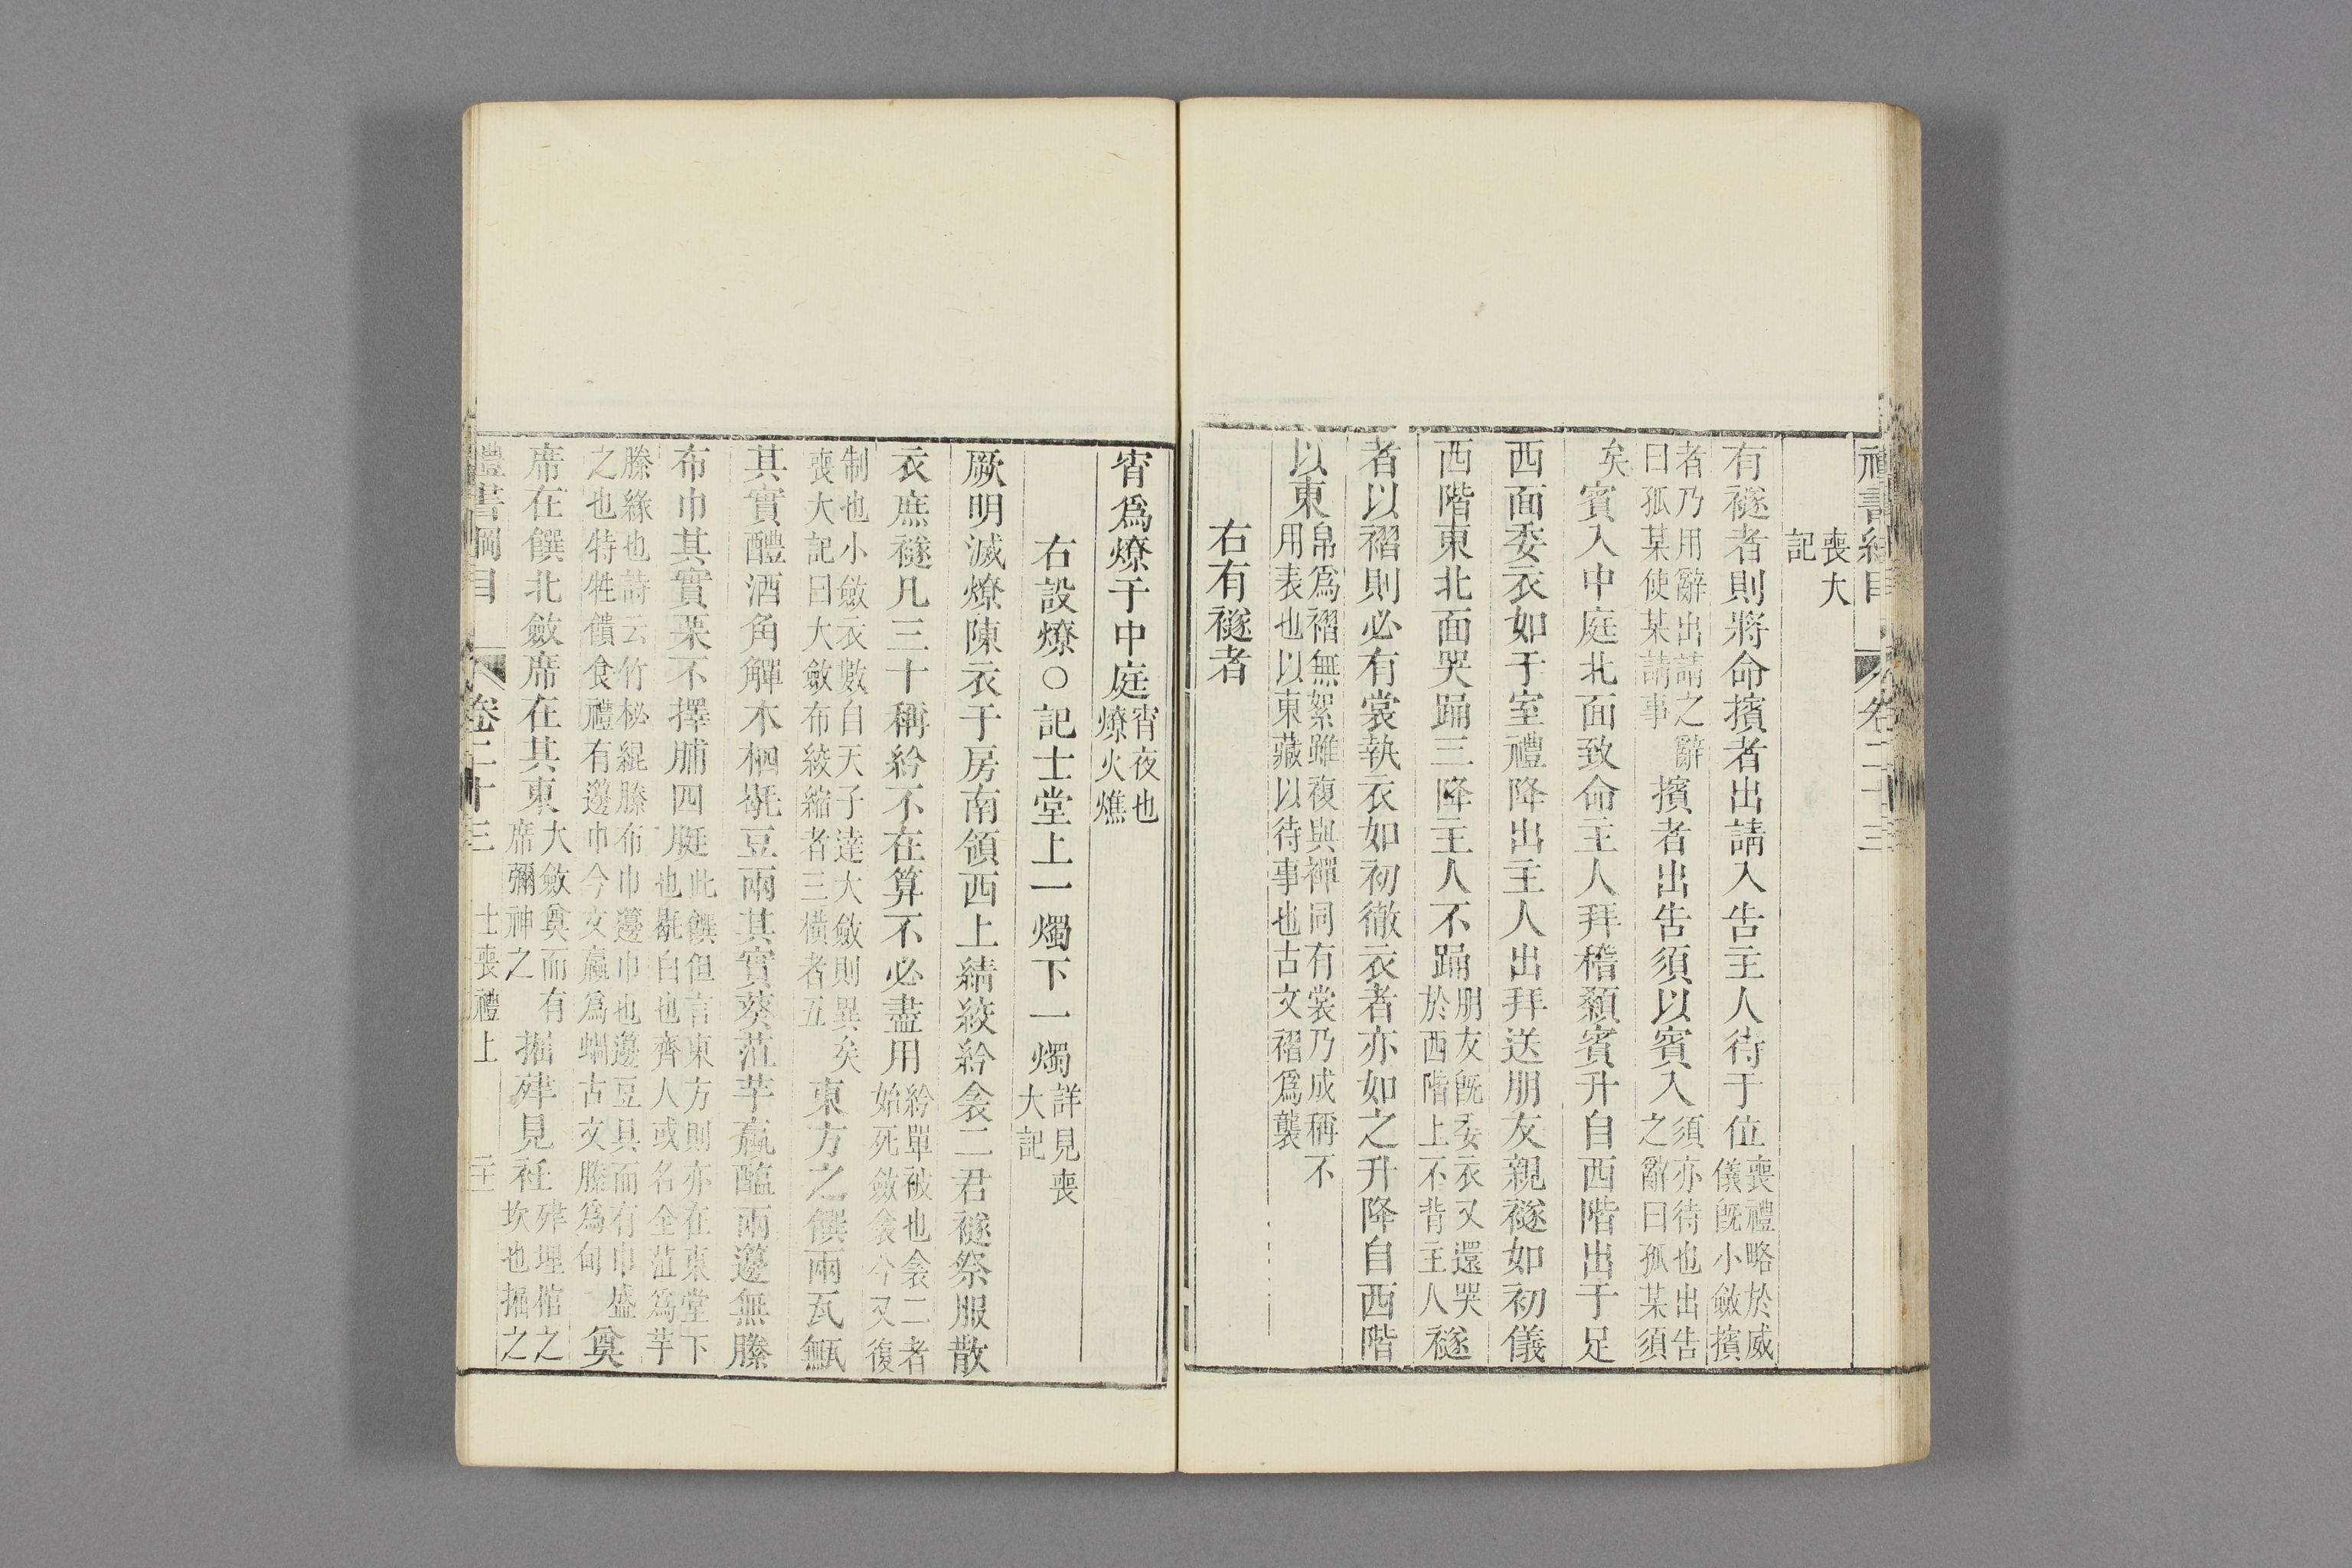 禮書綱目 卷二十三
喪大
記
有襚者則將命擯者出請入告主人待于位喪禮略於威
儀旣小斂擯
者乃用辭出請之辭
曰孤某使某請事擯者出告須以賓入須亦待也出告
之辭曰孤某須
矣賓入中庭北面致命主人拜稽顙賓升自西階出于足
西面委衣如于室禮降出主人出拜送朋友親襚如初儀
西階東北面哭踊三降主人不踊朋友旣委衣又還哭
於西階上不背主人襚
者以褶則必有裳執衣如初徹衣者亦如之升降自西階
以東帛爲褶無絮雖複與襌同有裳乃成稱不
用表也以東藏以待事也古文褶爲襲
右有襚者
宵爲燎于中庭宵夜也
燎火燋
右設燎○記士堂上一燭下一燭詳見喪
大記
厥明滅燎陳衣于房南領西上綪絞紟衾二君襚祭服散
衣庶襚凡三十稱紟不在算不必盡用紟單被也衾二者
始死斂衾今又復
制也小斂衣數自天子達大斂則異矣
喪大記曰大斂布絞縮者三橫者五東方之饌兩瓦甒
其實醴酒角觶木柶毼豆兩其實葵菹芋蠃醢兩籩無縢
布巾其實栗不擇脯四脡此饌但言東方則亦在東堂下
也毼白也齊人或名全菹爲芋
縢緣也詩云竹柲緄縢布巾籩巾也籩豆具而有巾盛
之也特牲饋食禮有籩巾今文蠃爲蝸古文縢爲甸奠
席在饌北斂席在其東大斂奠而有
席彌神之掘肂見衽肂埋棺之
坎也掘之
禮書綱目 卷二十三 士喪禮上 三